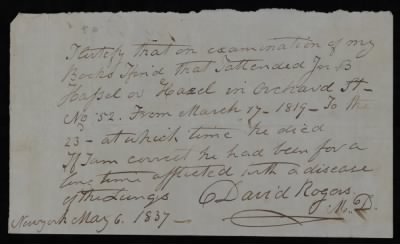 I certify that on examination of my
Books I find that I attended Jn. B
Hassel or Hazel in Orchard St-
No. 52. From March 17- 1819- To the
23- at which time he died
If I am correct he had been for a
long time afflicted with a disease
of the Lungs
David Rogers.
M.D.
New york May 6. 1837-